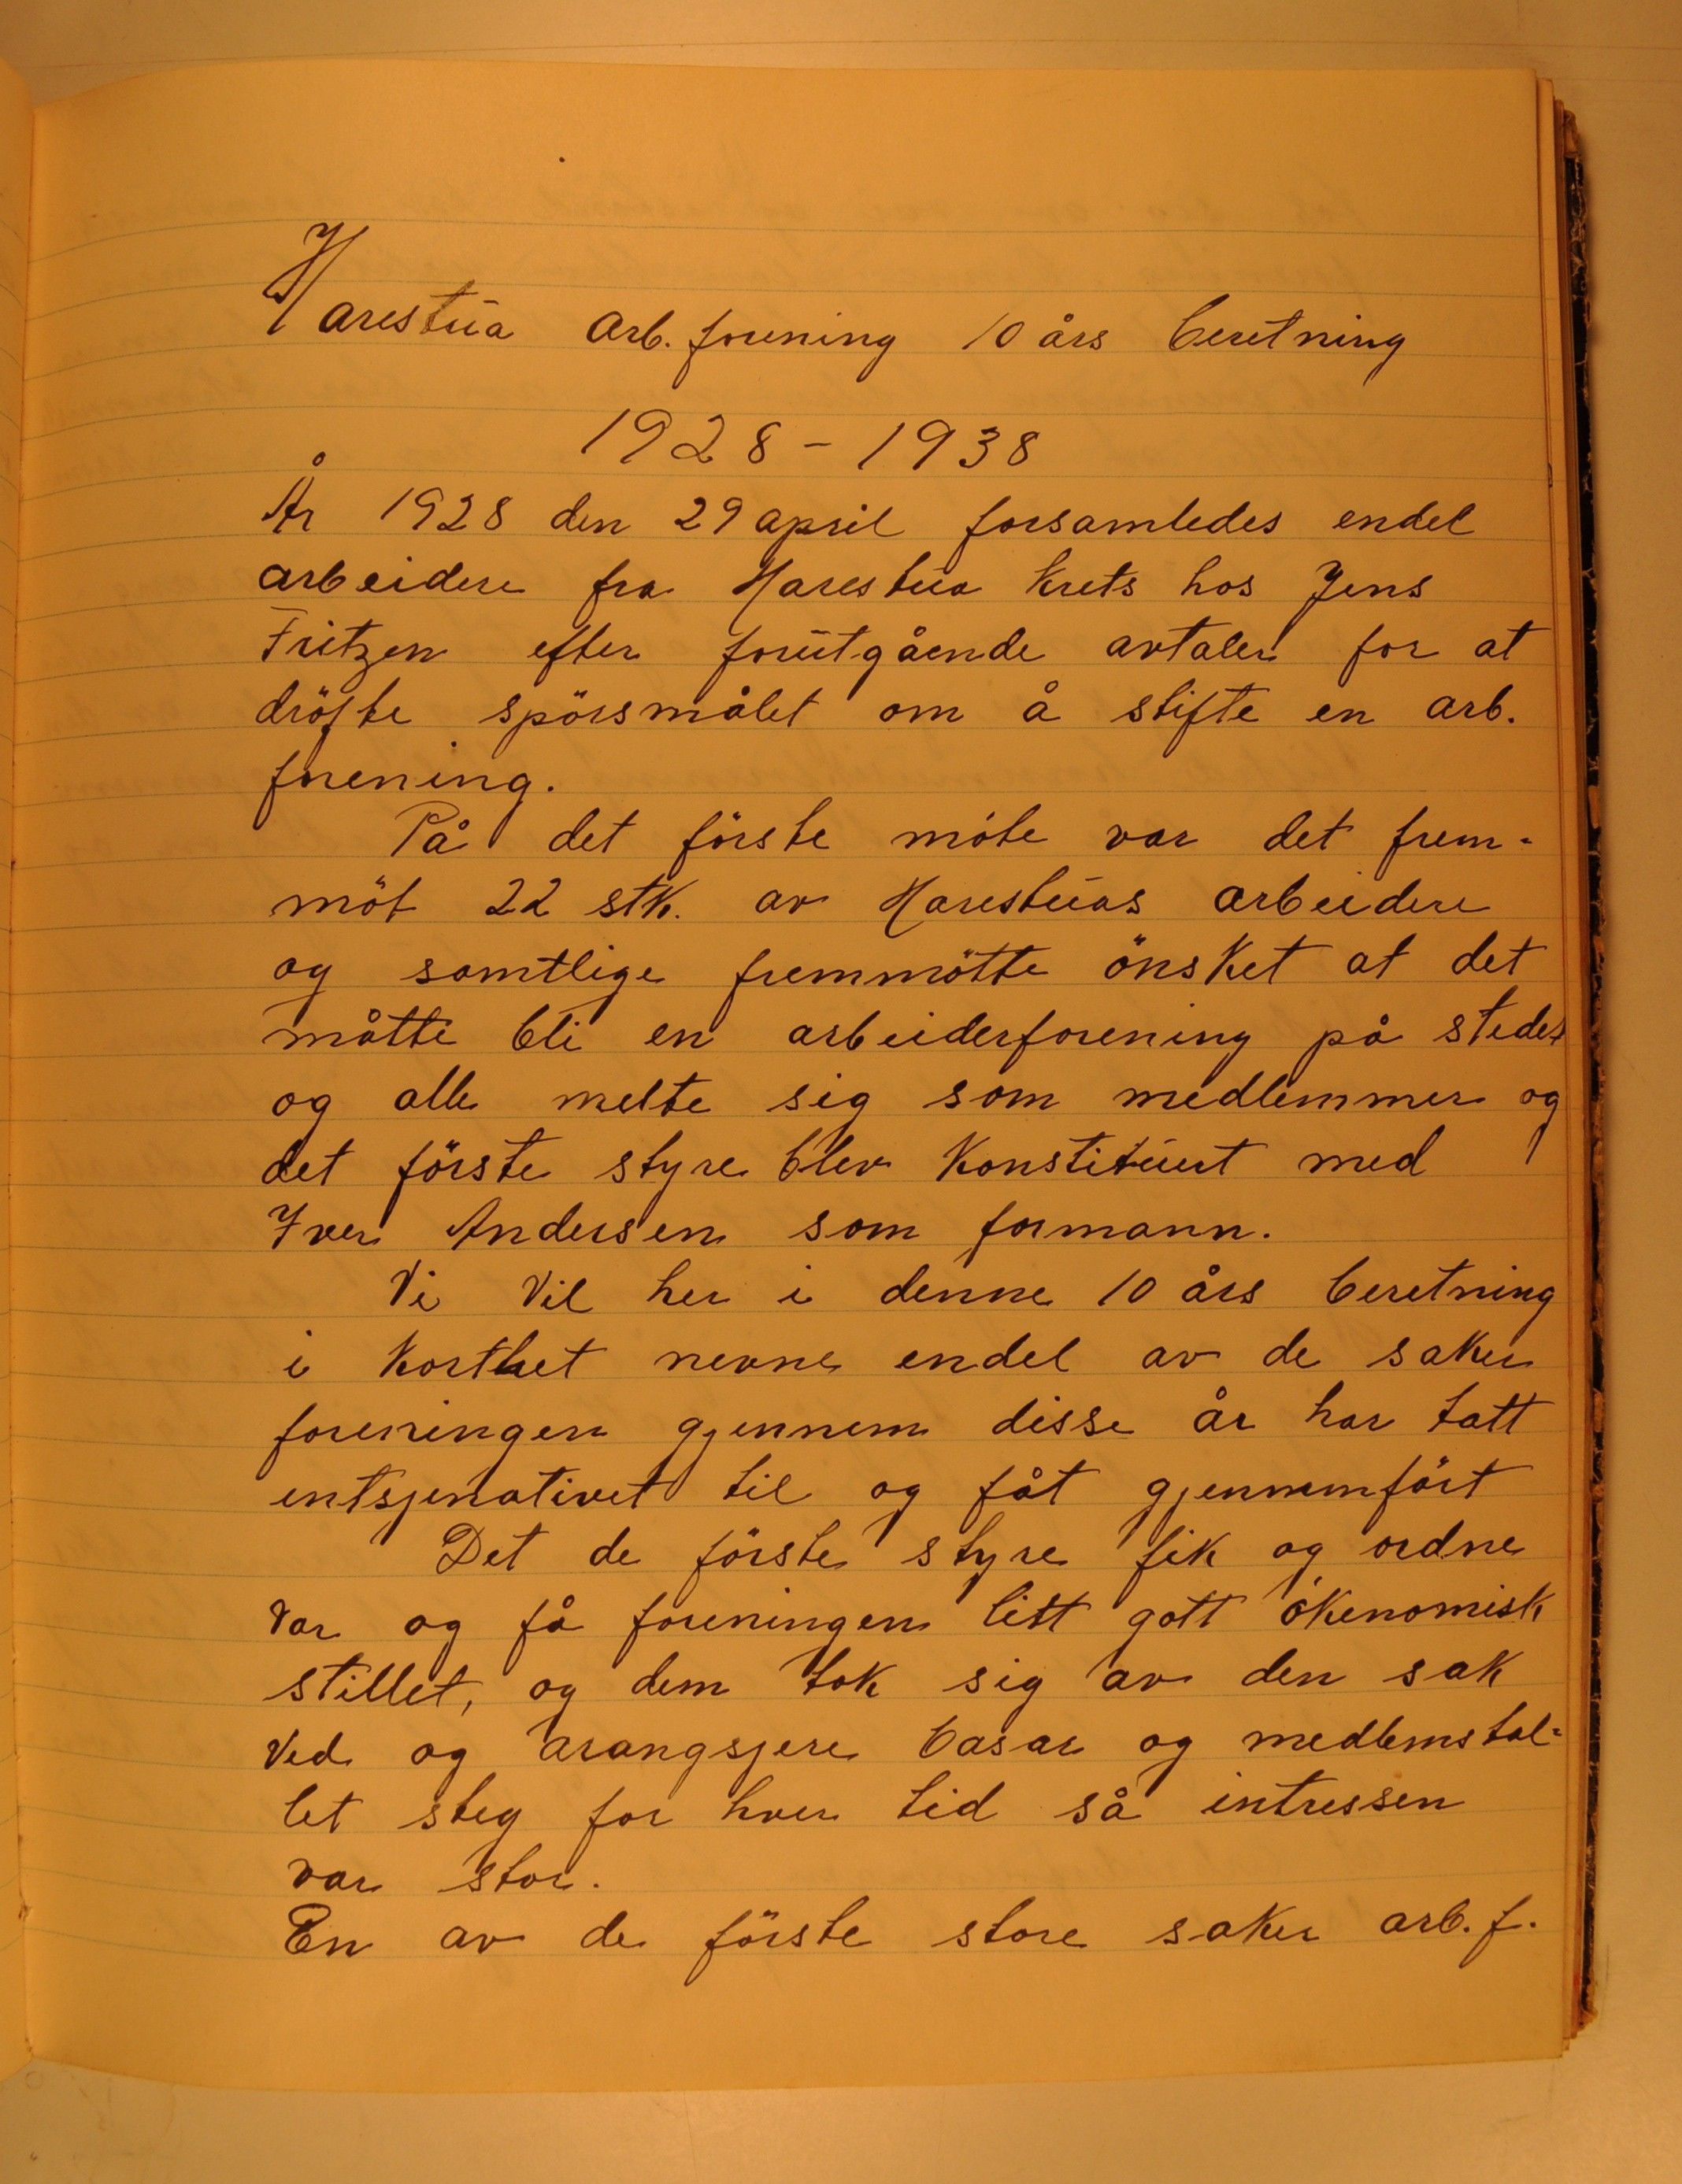 Harestua Arb. forening 10 års beretning
1928 - 1938
År 1928 den 29 april forsamledes endel
arbeidere fra Harestua krets hos Jens
Fritzen efter forutgående avtaler for at
dröfte spörsmålet om å stifte en arb.
forening.
På det förste möte var det frem-
möt 22 stk. av Harestuas arbeidere
og samtlige fremmötte önsket at det
måtte bli en arbeiderforening på stedet
og alle melte sig som medlemmer og
det förste styre blev konstituert med
Iver Andersen som formann.
Vi vil her i denne 10 års beretning
i korthet nevne endel av de saker
foreningen gjennem disse år har tatt
entsjenativet til og fåt gjennemfört
Det de förste styre fik og ordne
var og få foreningen litt gott ökenomisk
stillet, og dem tok sig av den sak
ved og arangsjere basar og medlemstal=
let steg for hver tid så intressen
var stor.
En av de förste store saker arb. f.